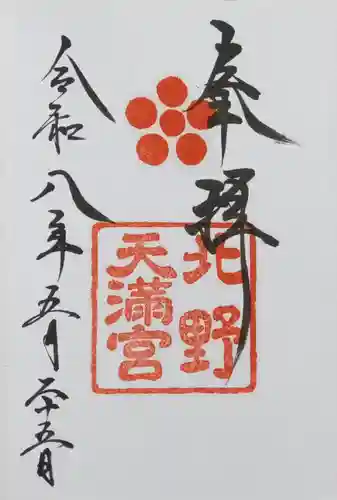 奉拝
北野
天満宮
令和八年五月二十五日